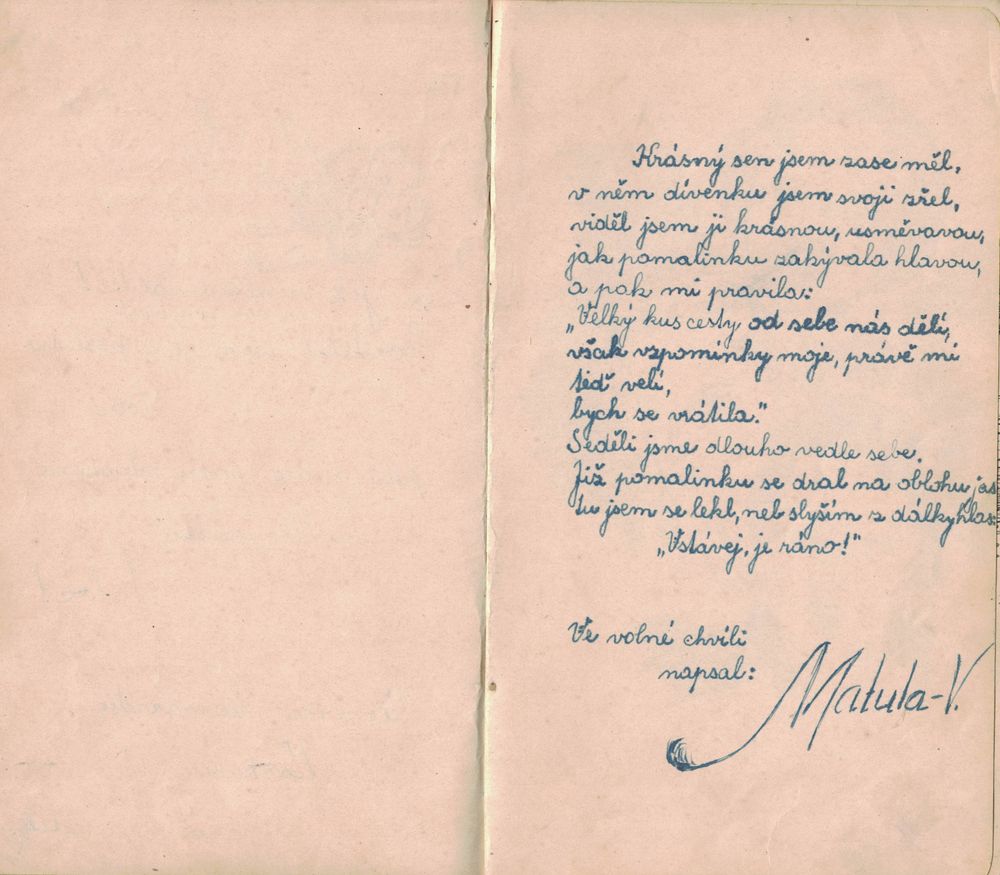 Krásný sen jsem zase měl,
v něm dívenku jsem svoji zřel,
viděl jsem ji krásnou, usměvavou,
jak pomalinku zakývala hlavou,
a pak mi pravila:
„Velký kus cesty od sebe nás dělí,
však vzpomínky moje, právě mi
teď velí,
bych se vrátila."
Seděli jsme dlouho vedle sebe.
Již pomalinku se dral na oblohu jas
tu jsem se lekl, neb slyším z dálky hlas:
„Vstávej, je ráno!"
Ve volné chvíli
napsal:
Matula-V.